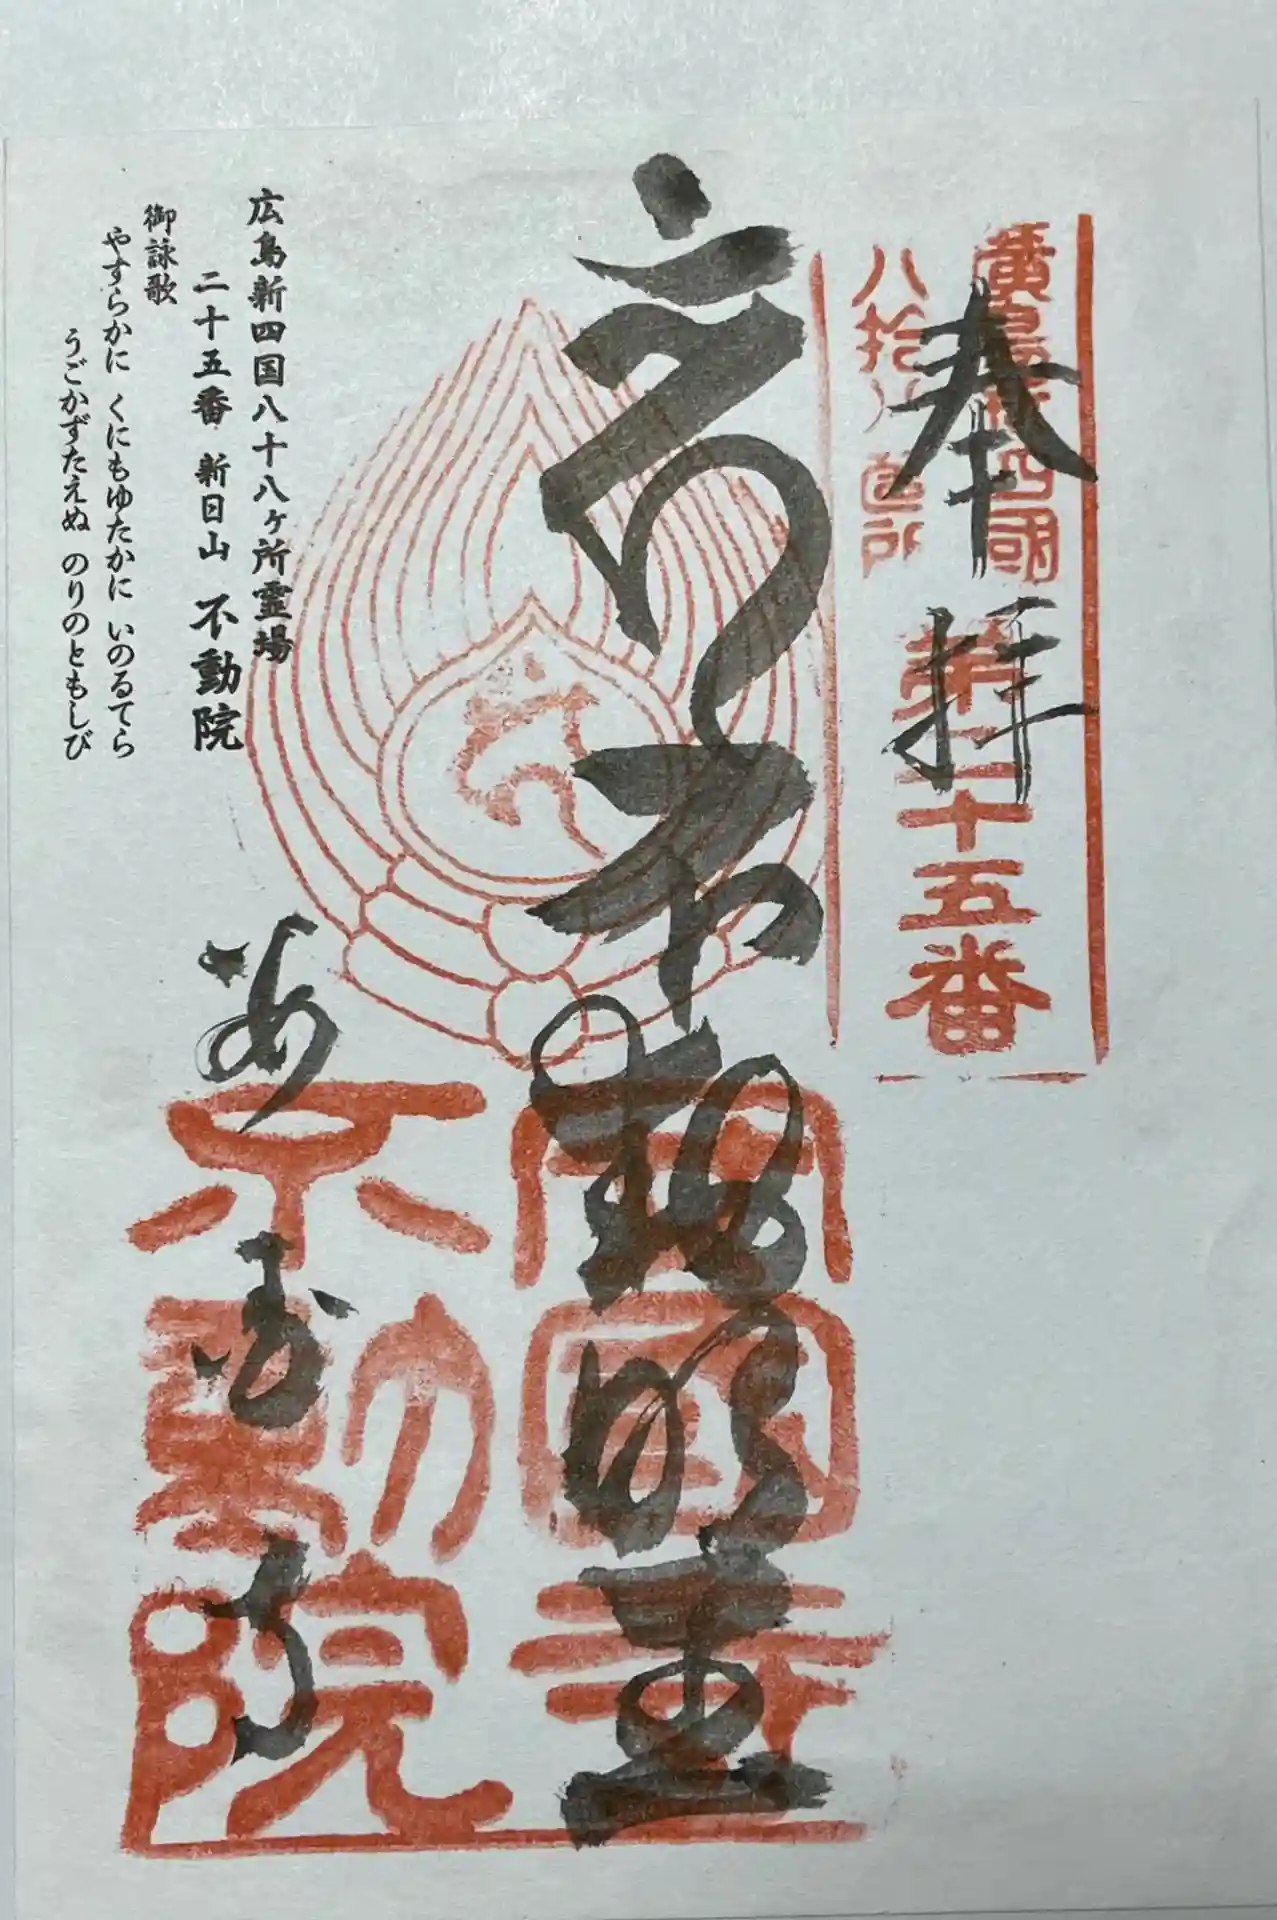 奉拝
廣島新四國
八拾八箇所
第二十五番
不動明王
安國寺
不動院
安国寺
広島新四国八十八ヶ所霊場
二十五番 新日山 不動院
御詠歌
やすらかに くにもゆたかに いのるてら
うごかずたえぬ のりのともしび